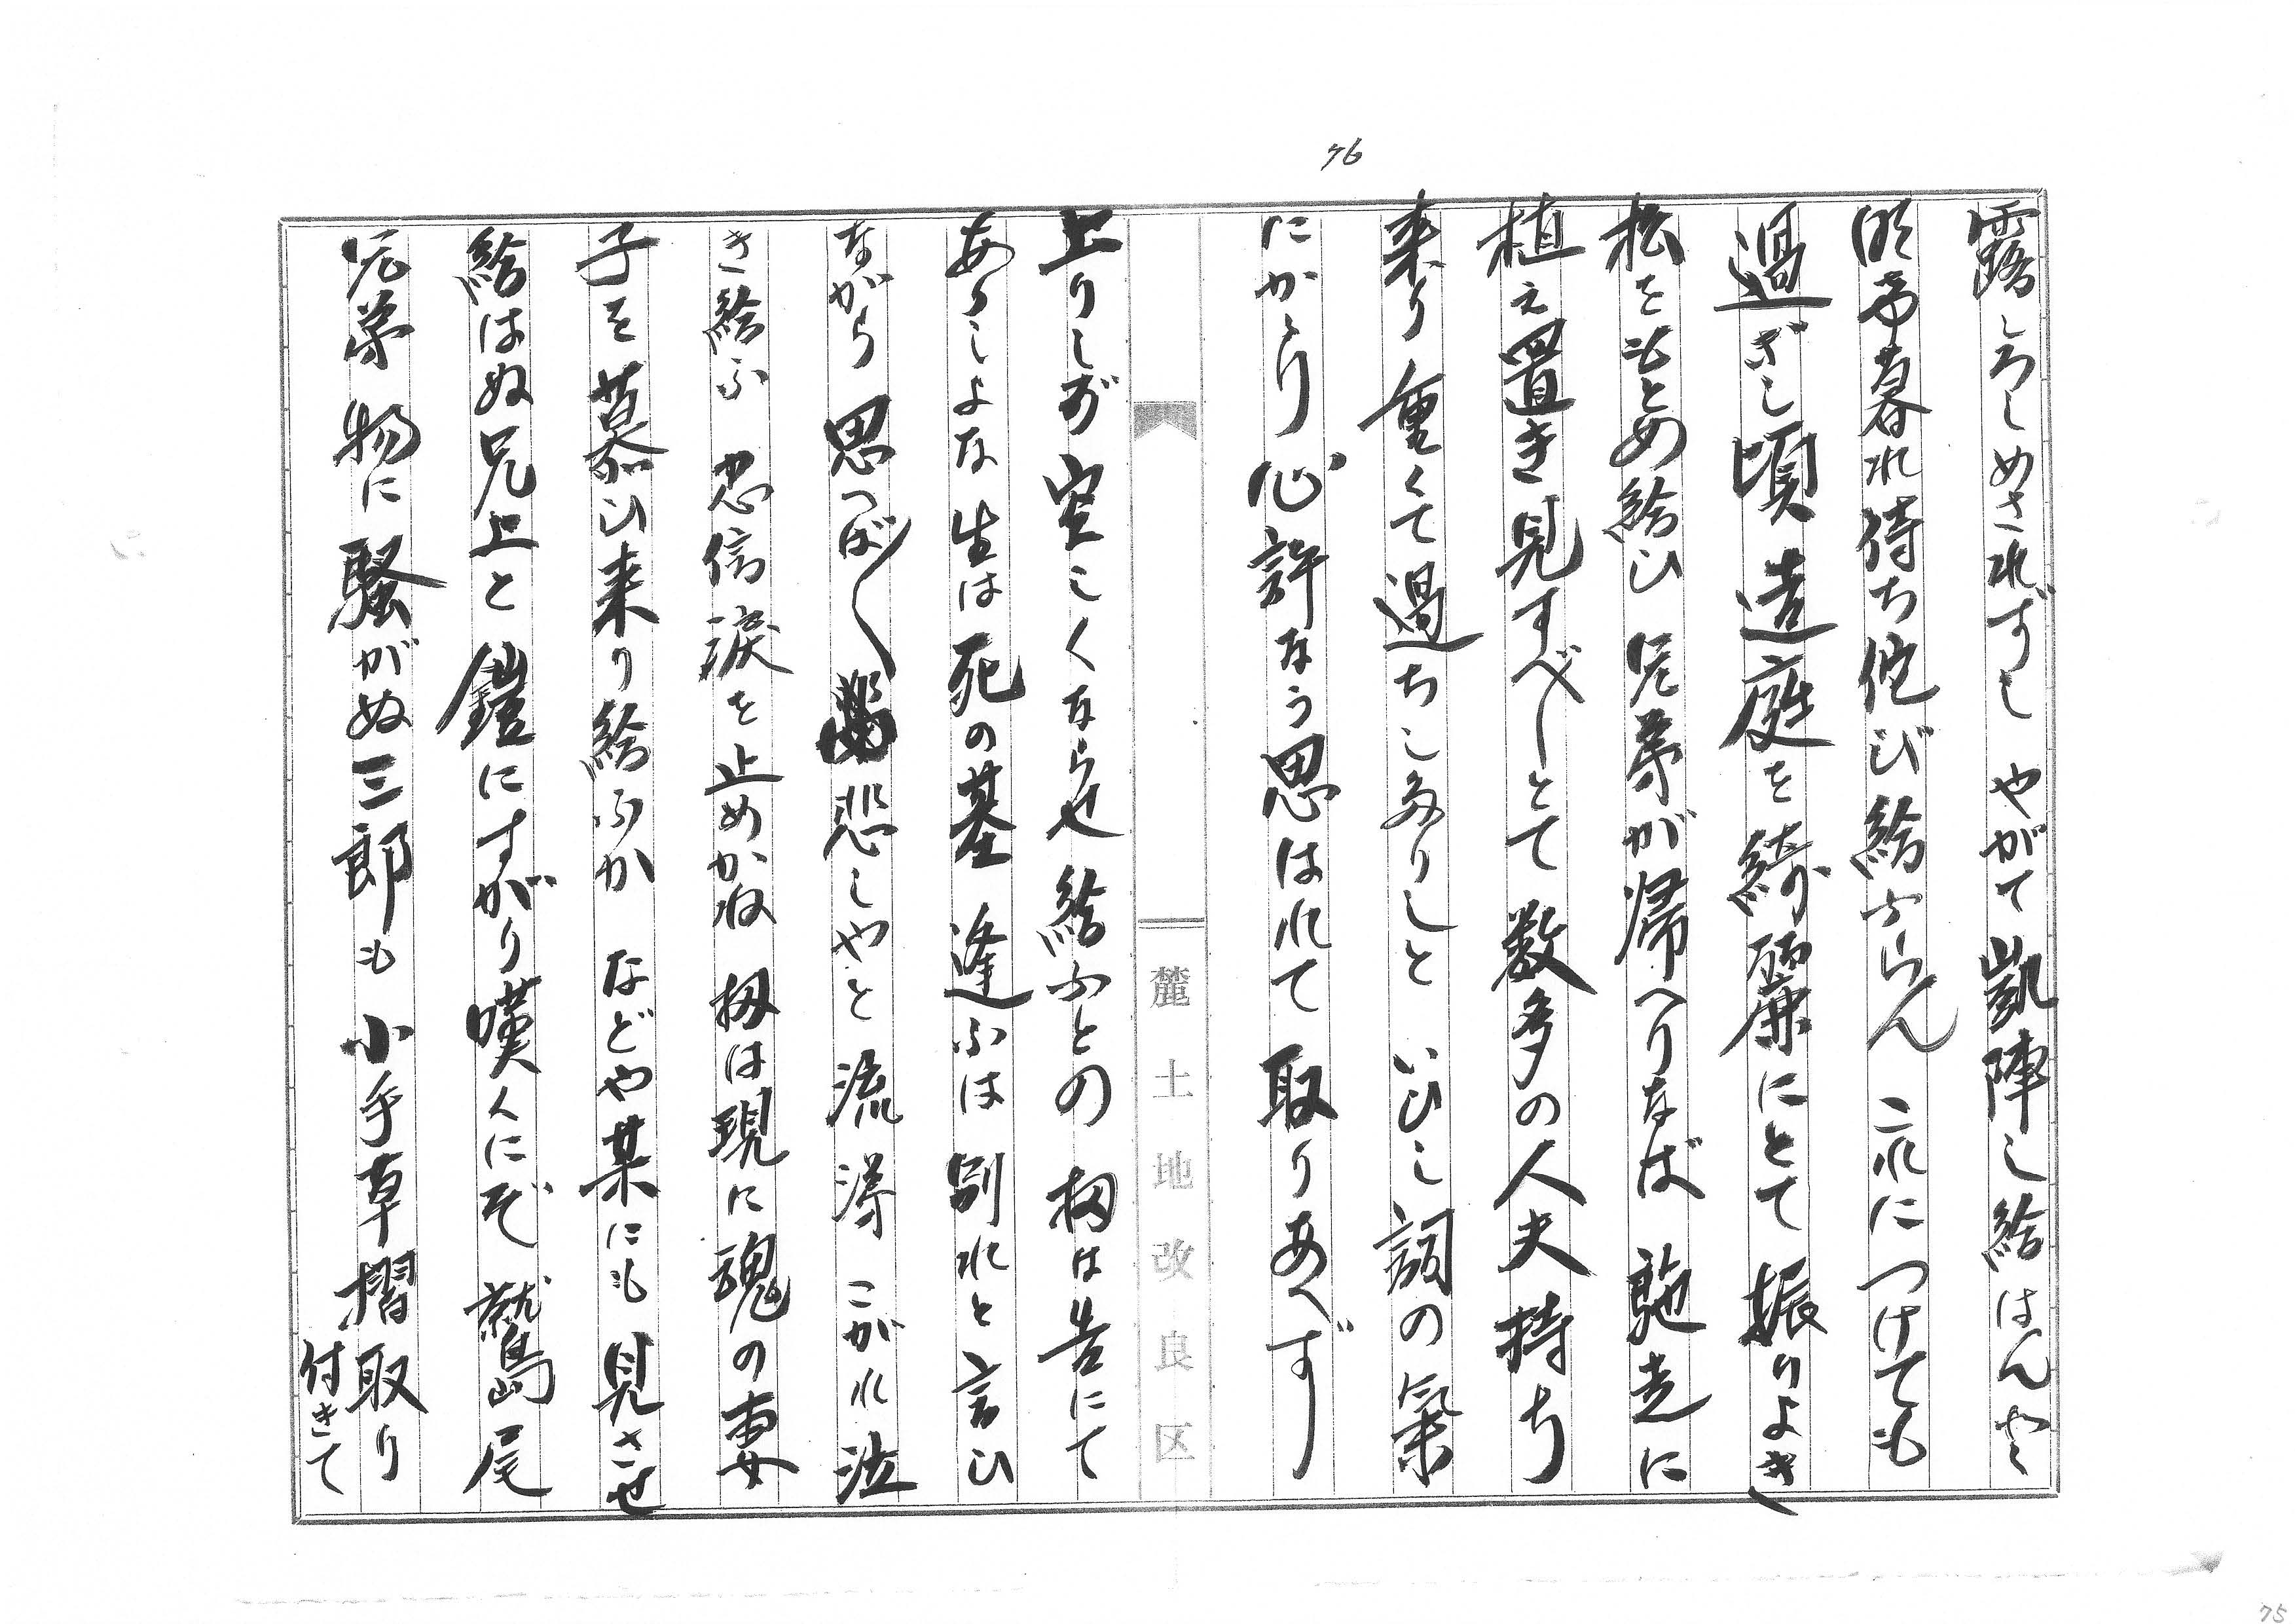 76
露しろしめされずして やがて凱陣し給はんと
明け暮れ待ち侘び給ふらん これにつけても
過ぎし頃 造庭を綺麗にとて 振りよき
松をもとめ給ひ 兄弟が帰へりなば 馳走に
植え置き見すべしとて 数多の人夫持ち
来り 重くて過ちしありしと いひし詞の氣
にかゝり 心許なう思はれて 取りあへず
上りしが 空しくならせ給ふとの 扨は告にて
ありしよな 生は死の基 逢ふは別れと言ひ
ながら 思へば〱 悲しやと 流涕こがれ泣
き給ふ 忠信涙を止めかね 扨は現に魂の妻
子を慕ひ来り給ふか などや某にも見させ
給はぬ兄上と 鎧にすがり嘆くにぞ 鷲尾
兄弟 物に騒がぬ三郎も 小手草摺取り
付きて
麓土地改良区
75